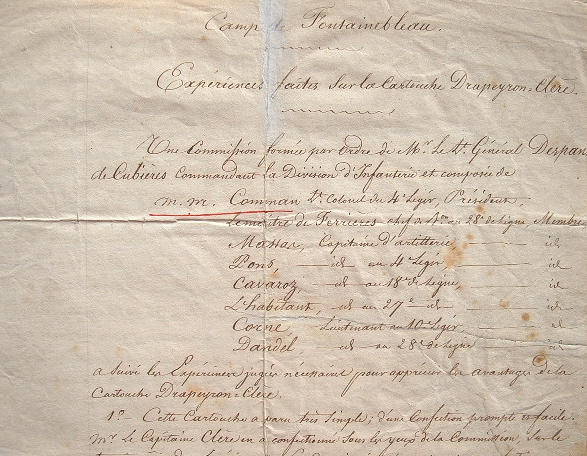 Camp de Fontainebleau.
Expériences faites sur la Cartouche Drapeyron=Clère.
Une Commission formée par ordre de Mr. Le Lt. Général Despan
de Cubières Commandant la Division d'Infanterie et composée de
M.M. Comman Lt. Colonel du 4e Léger, Président,
Lemaitre de Ferrières chef de Bon au 28e de Ligne Membre
Massas, Capitaine d'artillerie, id
Pons, id au 4e Léger id
Cavaroz, id au 18e de Ligne, id
L'habitant, id au 27e id id
Corne, Lieutenant au 10e Léger, id
Dandel, id au 28e de Ligne id
a suivi les Expériences jugées nécessaire pour apprécier les avantages de la
Cartouche Drapeyron=Clère.
1o. Cette Cartouche a paru très simple; d'une Confection prompte et facile.
Mr. Le Capitaine Clère en a confectionné sous les yeux de la Commission, sur le